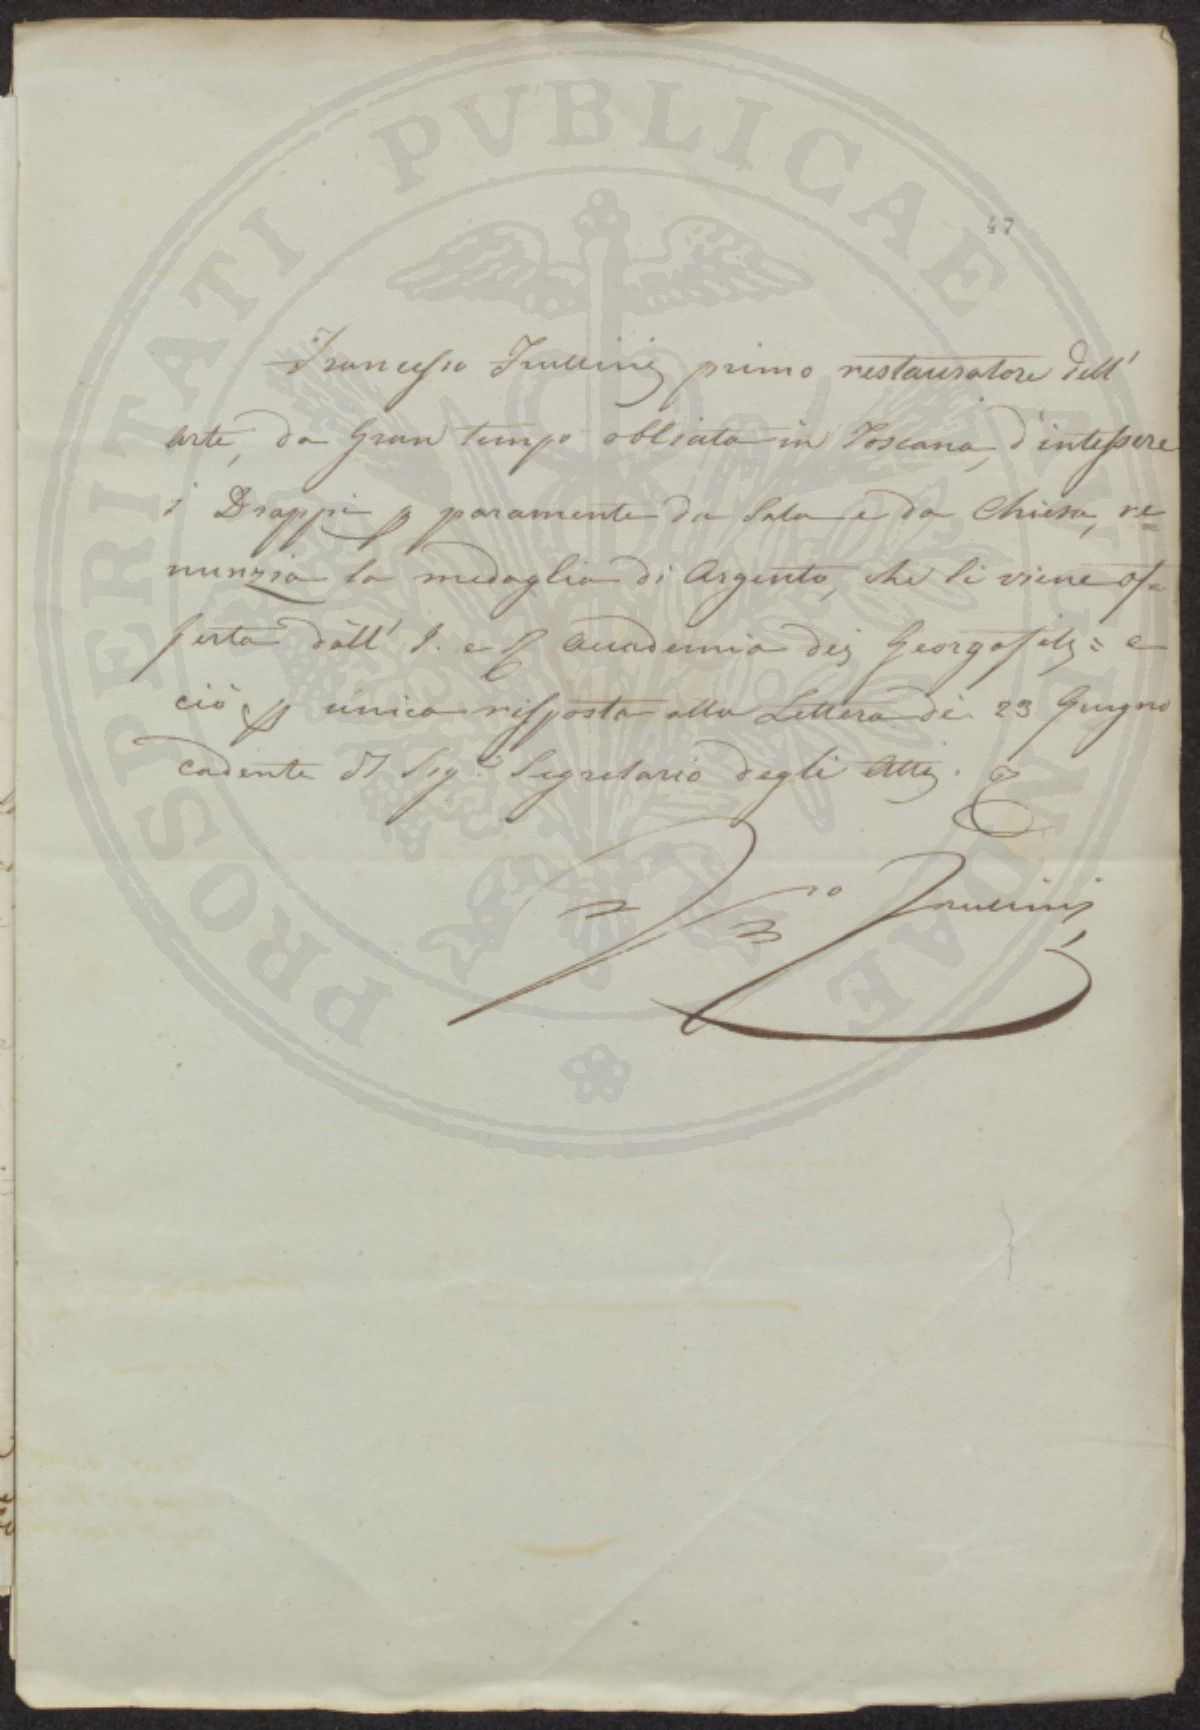 PROSPERITATI PVBLICAE AVGENDAE
47
Francesco Frullini primo restauratore dell'
arte, da Gran tempo obliata in Toscana, d'intessere
i Drappi p paramenti da Sala e da Chiesa, re=
nunzia la medaglia di Argento, che li viene of=
ferta dall' I. e R. Accademia dei Georgofili = e
ciò p unica risposta alla Lettera de 23 Giugno
cadente Sig. Segretario degli Atti.
Frullini